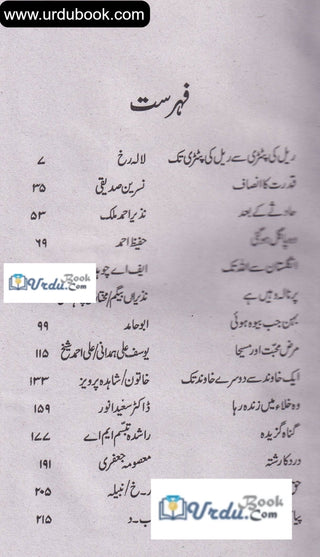 www.urdubook.com
فہرست
ریل کی پٹڑی سے ریل کی پٹڑی تک لالہ رخ ۷
قدرت کا انصاف نسرین صدیقی ۳۵
حادثے کے بعد نذیر احمد ملک ۵۳
وہ پاگل ہو گئی حفیظ احمد ۶۹
انگلستان سے اللہ تک ایف اے
پرنالہ وہیں ہے نذیراں بیگم/
بہن جب بیوہ ہوئی ابو حامد ۹۹
مرضِ محبت اور مسیحا یوسف علی ہمدانی/علی احمد شیخ ۱۱۵
ایک خاوند سے دوسرے خاوند تک خاتون/شاہدہ پرویز ۱۳۳
وہ خلاء میں زندہ رہا ڈاکٹر سعید انور ۱۵۹
گناہ گزیدہ راشدہ تبسّم ایم اے ۱۷۷
درد کا رشتہ معصومہ جعفری ۱۹۱
حق ر-خ/نبیلہ ۲۰۵
ب-د ۲۱۵
Urdu Book .Com
Urdu Book .Com